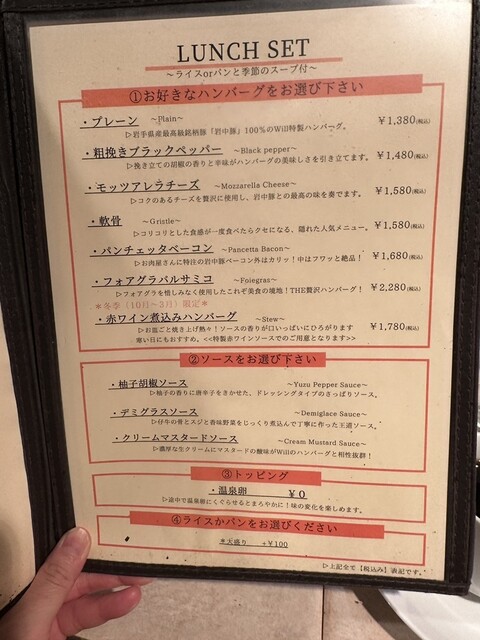 LUNCH SET
～ライスorパンと季節のスープ付～
①お好きなハンバーグをお選び下さい
・プレーン ～Plain～ ¥1,380(税込)
▷岩手県産最高級銘柄豚「岩中豚」100%のWill特製ハンバーグ。
・粗挽きブラックペッパー ～Black pepper～ ¥1,480(税込)
▷挽き立ての胡椒の香りと辛味がハンバーグの美味しさを引き立てます。
・モッツアレラチーズ ～Mozzarella Cheese～ ¥1,580(税込)
▷コクのあるチーズを贅沢に使用し、岩中豚との最高の味を奏でます。
・軟骨 ～Gristle～ ¥1,580(税込)
▷コリコリとした食感が一度食べたらクセになる、隠れた人気メニュー。
・パンチェッタベーコン ～Pancetta Bacon～ ¥1,680(税込)
▷お肉屋さんに特注の岩中豚ベーコン外はカリッ！中はフワッと絶品！
・フォアグラバルサミコ ～Foiegras～ ¥2,280(税込)
▷フォアグラを惜しみなく使用したこれぞ美食の境地！THE贅沢ハンバーグ！
＊冬季（10月～3月）限定＊
・赤ワイン煮込みハンバーグ ～Stew～ ¥1,780(税込)
▷お皿ごと焼き上げ熱々！ソースの香りが口いっぱいにひろがります
寒い日にもおすすめ。<<特製赤ワインソースでのご用意となります>>
②ソースをお選び下さい
・柚子胡椒ソース ～Yuzu Pepper Sauce～
▷柚子の香りに唐辛子をきかせた、ドレッシングタイプのさっぱりソース。
・デミグラスソース ～Demiglace Sauce～
▷仔牛の骨とスジと香味野菜をじっくり煮込んで丁寧に作った王道ソース。
・クリームマスタードソース ～Cream Mustard Sauce～
▷濃厚な生クリームにマスタードの酸味がWillのハンバーグと相性抜群！
③トッピング
・温泉卵 ¥0
▷途中で温泉卵にくぐらせるとまろやかに！味の変化を楽しめます。
④ライスかパンをお選びください
＊大盛り +¥100
▷上記全て【税込み】表記です。